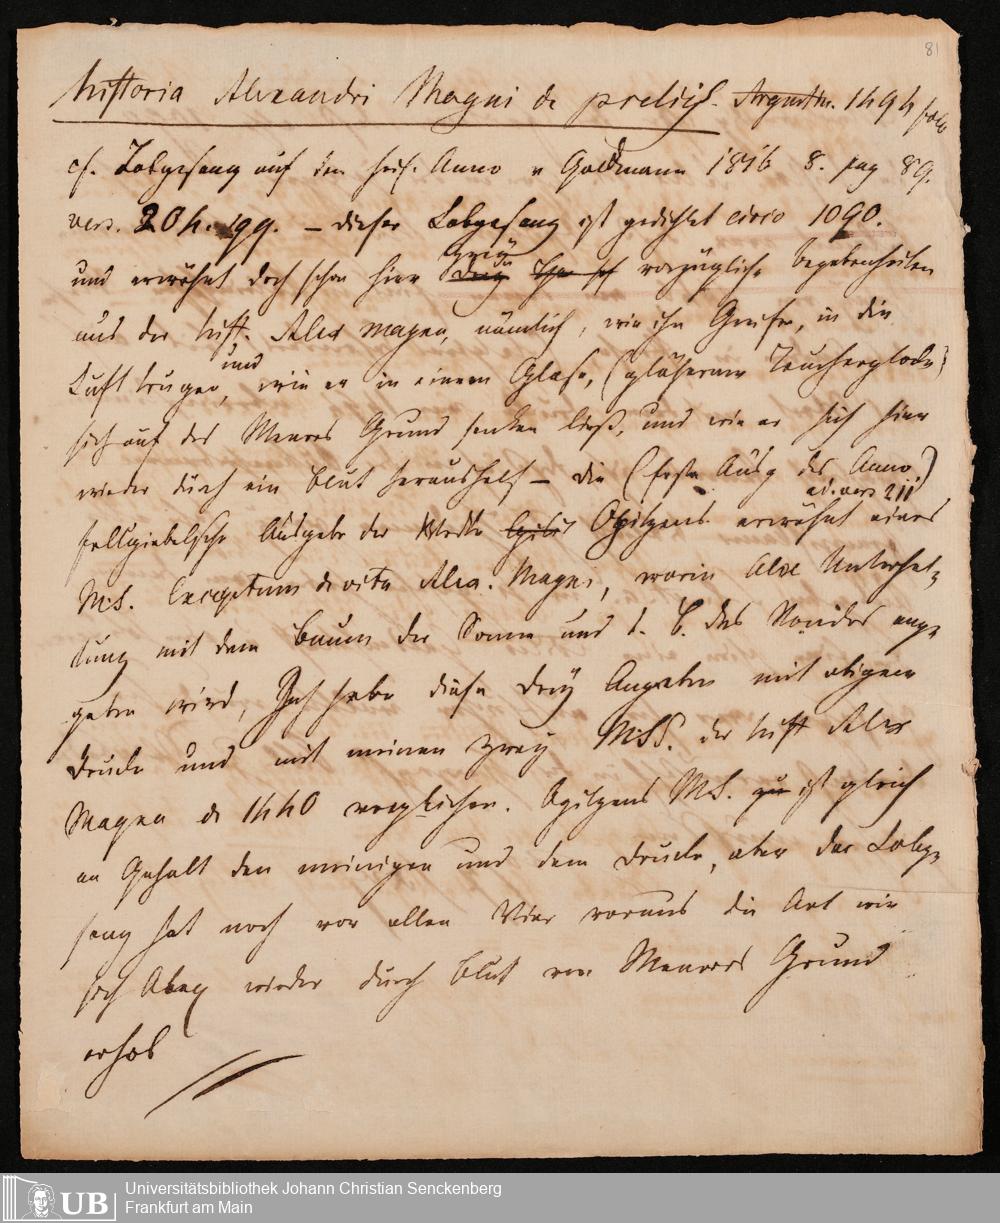 81
Historia Alexandri Magni de preliis. Argentin. 1494 folo
cf. Lobgesang auf den heil. Anno v Goldmann 1816 8. pag 89.
vers. 204. 199. – dieser Lobgesang ist gedichtet circa 1090.
und erwähnt doch schon hier zwey vorzügliche Begebenheiten
aus der hist. Alex magni, nämlich, wie ihn Greife, in die
Luft trugen, und wie er in einem Glase, (gläserner Taucherglocke)
sich auf des Meeres Grund senken ließ, und wie er sich hier
wieder durch ein Blut heraushalf – die (erste Ausg des Anno)
ad. vers 211
fellgiebelsche Ausgabe der Werke Opitzens erwähnt eines
M.S. Excerptum de vita Alex. Magni, worin Alex Unterhal-
tung mit dem Baum der Sonne und d. B. des Mondes ange-
geben wird, Ich habe diese drey Angaben mit obigem
Drucke und mit meinen zwey MSS. der hist Alex
Magni de 1440 verglichen. Opitzens MS. ist gleich
an Gehalt den meinigen und dem Drucke, aber der Lobge-
sang hat noch vor allen Vier voraus die Art wie
sich Alex wieder durch Blut vom Meeres Grund
erhob
UB
Universitätsbibliothek Johann Christian Senckenberg
Frankfurt am Main